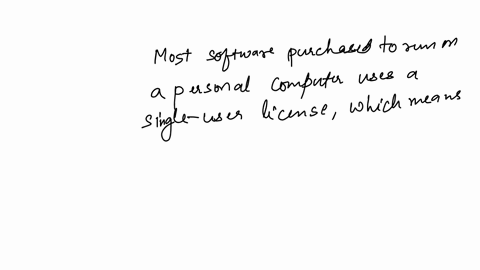 Most software purchased to run on
a personal computer uses a
single-user license, which means